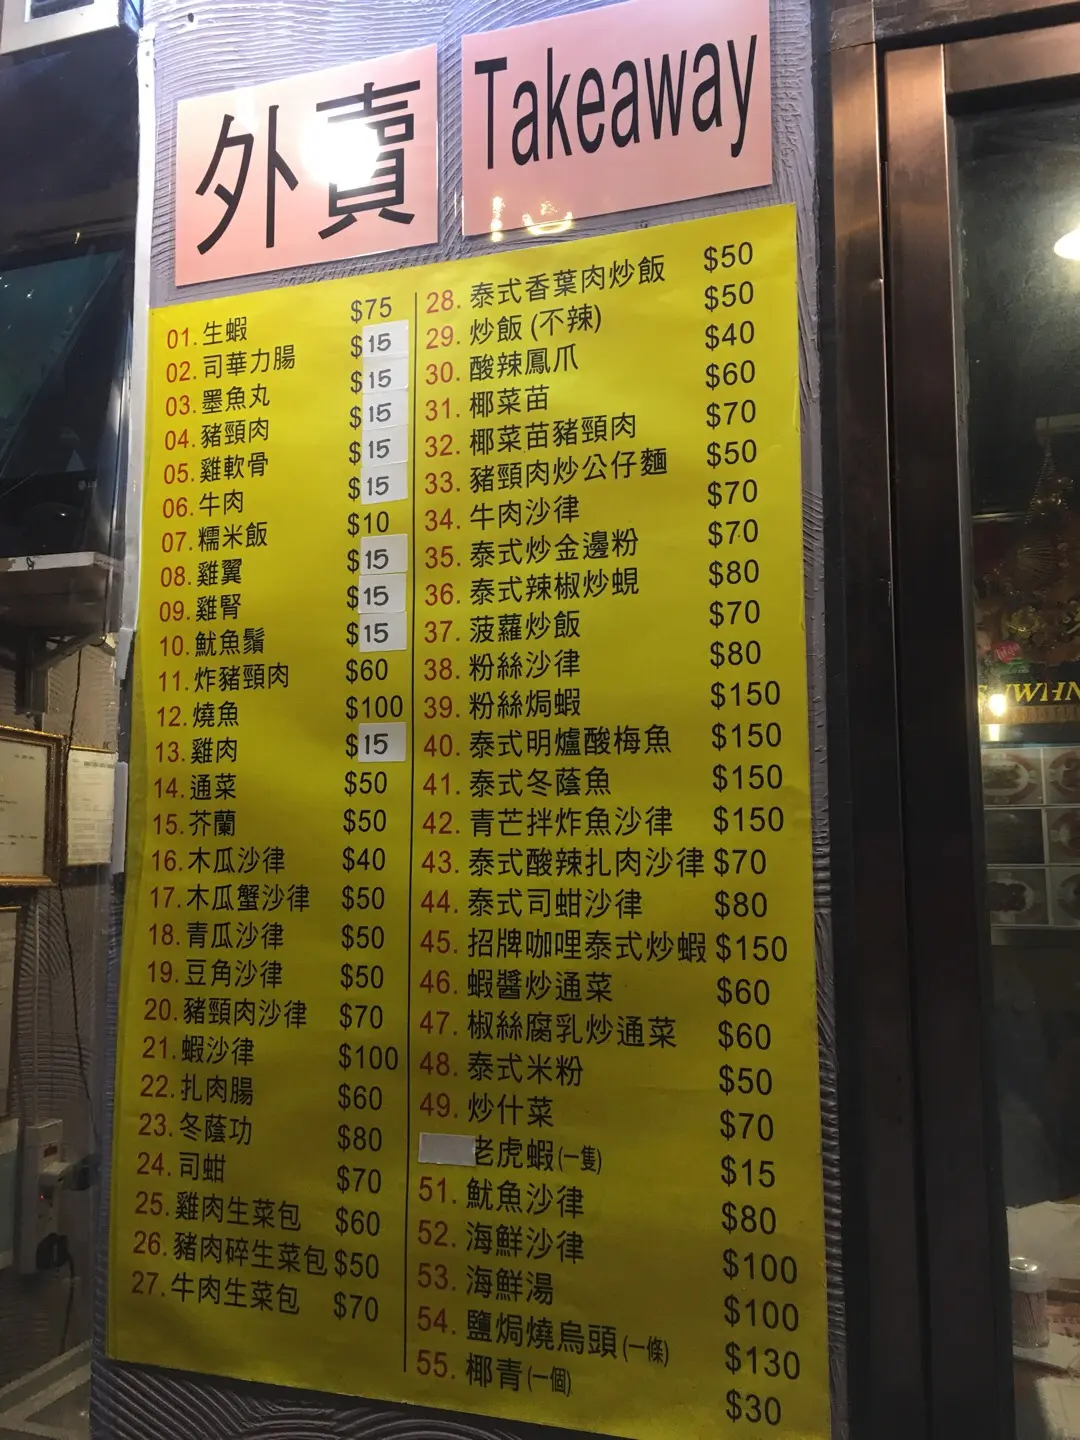 外賣
Takeaway
01. 生蝦 $75
02. 司華力腸 $15
03. 墨魚丸 $15
04. 豬頸肉 $15
05. 雞軟骨 $15
06. 牛肉 $15
07. 糯米飯 $10
08. 雞翼 $15
09. 雞腎 $15
10. 魷魚鬚 $15
11. 炸豬頸肉 $60
12. 燒魚 $100
13. 雞肉 $15
14. 通菜 $50
15. 芥蘭 $50
16. 木瓜沙律 $40
17. 木瓜蟹沙律 $50
18. 青瓜沙律 $50
19. 豆角沙律 $50
20. 豬頸肉沙律 $70
21. 蝦沙律 $100
22. 扎肉腸 $60
23. 冬蔭功 $80
24. 司蚶 $70
25. 雞肉生菜包 $60
26. 豬肉碎生菜包 $50
27. 牛肉生菜包 $70
28. 泰式香葉肉炒飯 $50
29. 炒飯 (不辣) $50
30. 酸辣鳳爪 $40
31. 椰菜苗 $60
32. 椰菜苗豬頸肉 $70
33. 豬頸肉炒公仔麵 $50
34. 牛肉沙律 $70
35. 泰式炒金邊粉 $70
36. 泰式辣椒炒蜆 $80
37. 菠蘿炒飯 $70
38. 粉絲沙律 $80
39. 粉絲焗蝦 $150
40. 泰式明爐酸梅魚 $150
41. 泰式冬蔭魚 $150
42. 青芒拌炸魚沙律 $150
43. 泰式酸辣扎肉沙律 $70
44. 泰式司蚶沙律 $80
45. 招牌咖哩泰式炒蝦 $150
46. 蝦醬炒通菜 $60
47. 椒絲腐乳炒通菜 $60
48. 泰式米粉 $50
49. 炒什菜 $70
老虎蝦(一隻) $15
51. 魷魚沙律 $80
52. 海鮮沙律 $100
53. 海鮮湯 $100
54. 鹽焗燒烏頭(一條) $130
55. 椰青(一個) $30